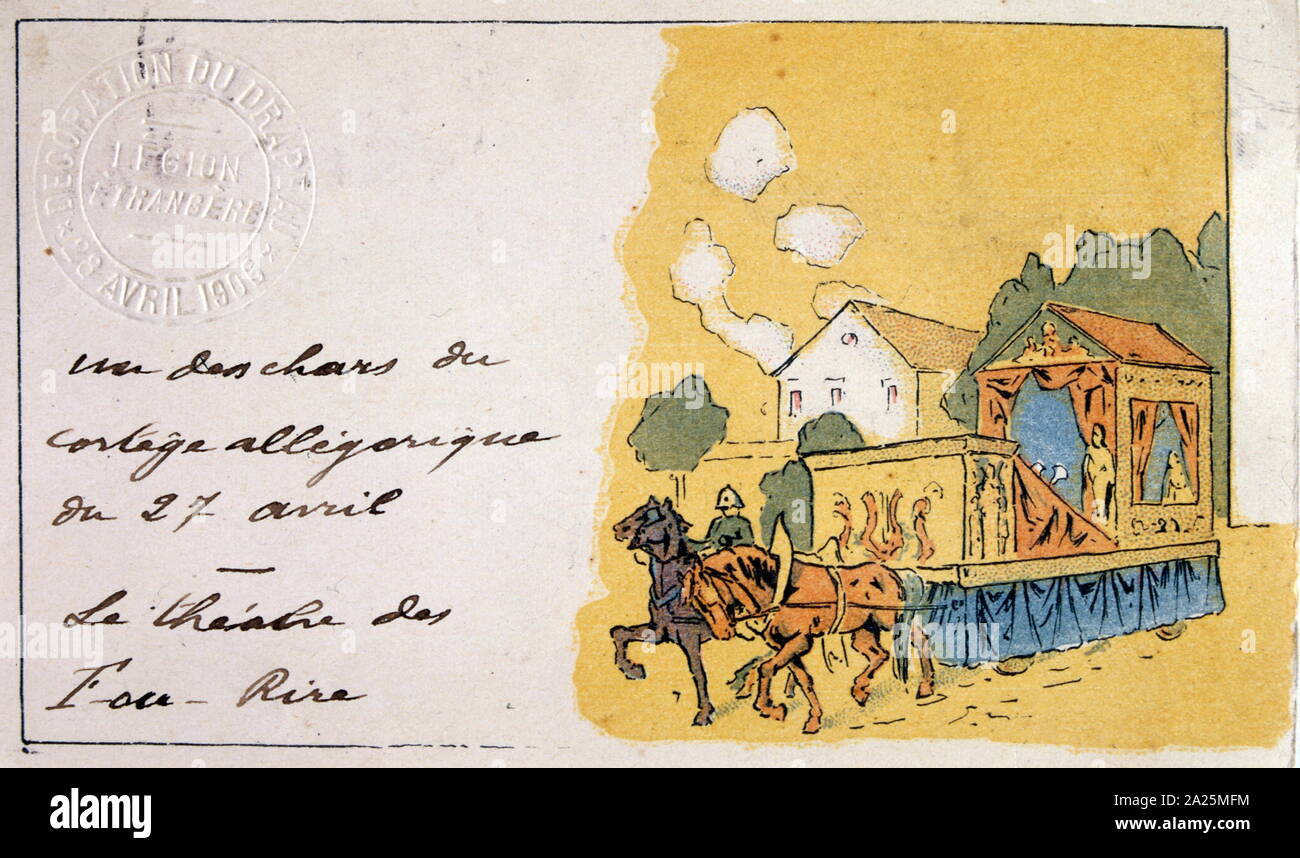 DECORATION DU DRAPEAU
LEGION
ÉTRANGÈRE
* 28 AVRIL 1906 *
un des chars du
cortège allégorique
du 27 avril
—
Le théatre des
Fou-Rire
alamy
alamy
Image ID: 2A25MFM
www.alamy.com